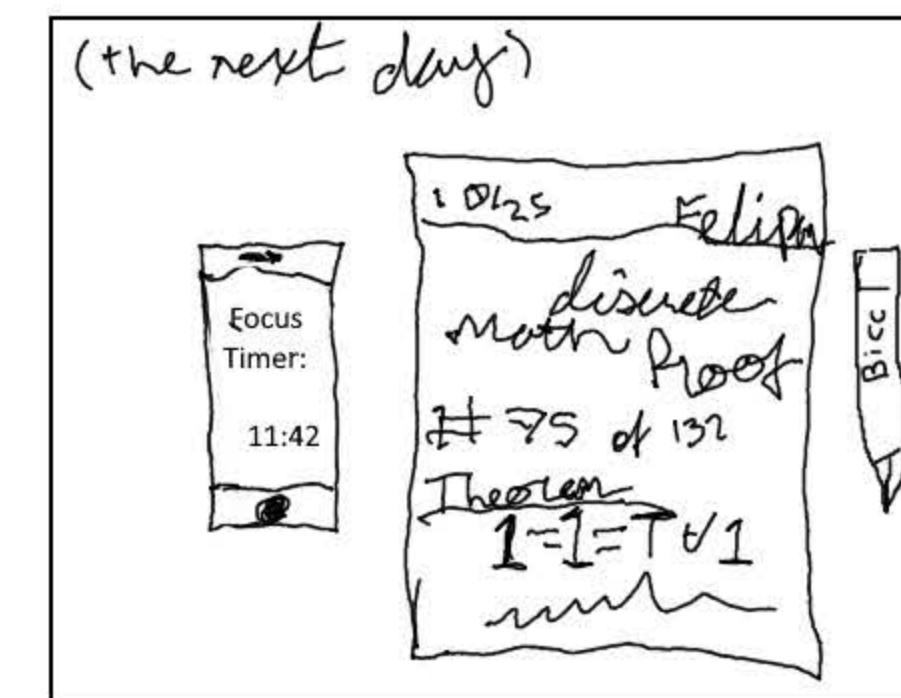 (the next day)
Focus
Timer:
11:42
Felipe
discrete
Math Proof
# 75 of 132
Theorem
1=1=T ∀ 1
Bicc